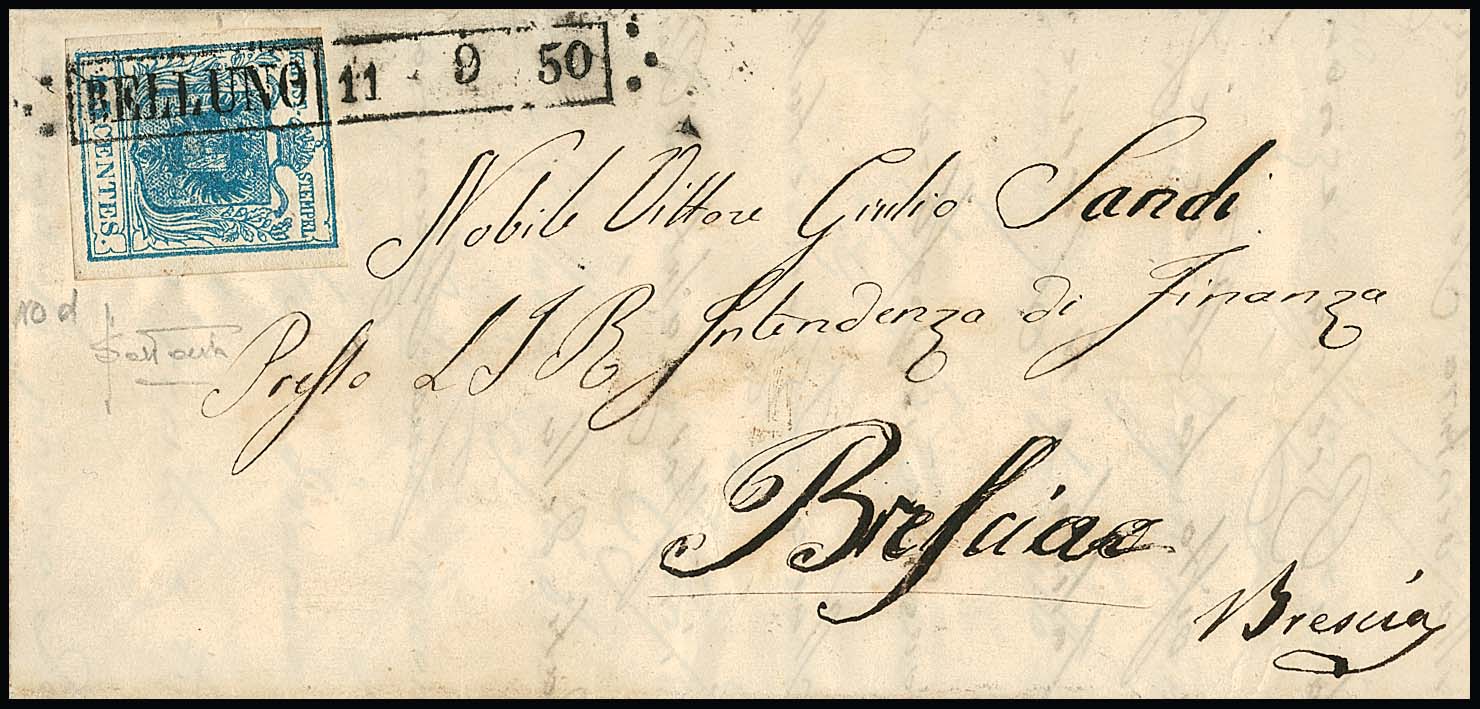 BELLUNO 11 9 50
CENTES.
STEMPEL
Nobile Vittore Giulio Sandi
Presso L I R Intendenza di Finanza
Brescia
Brescia
10 d